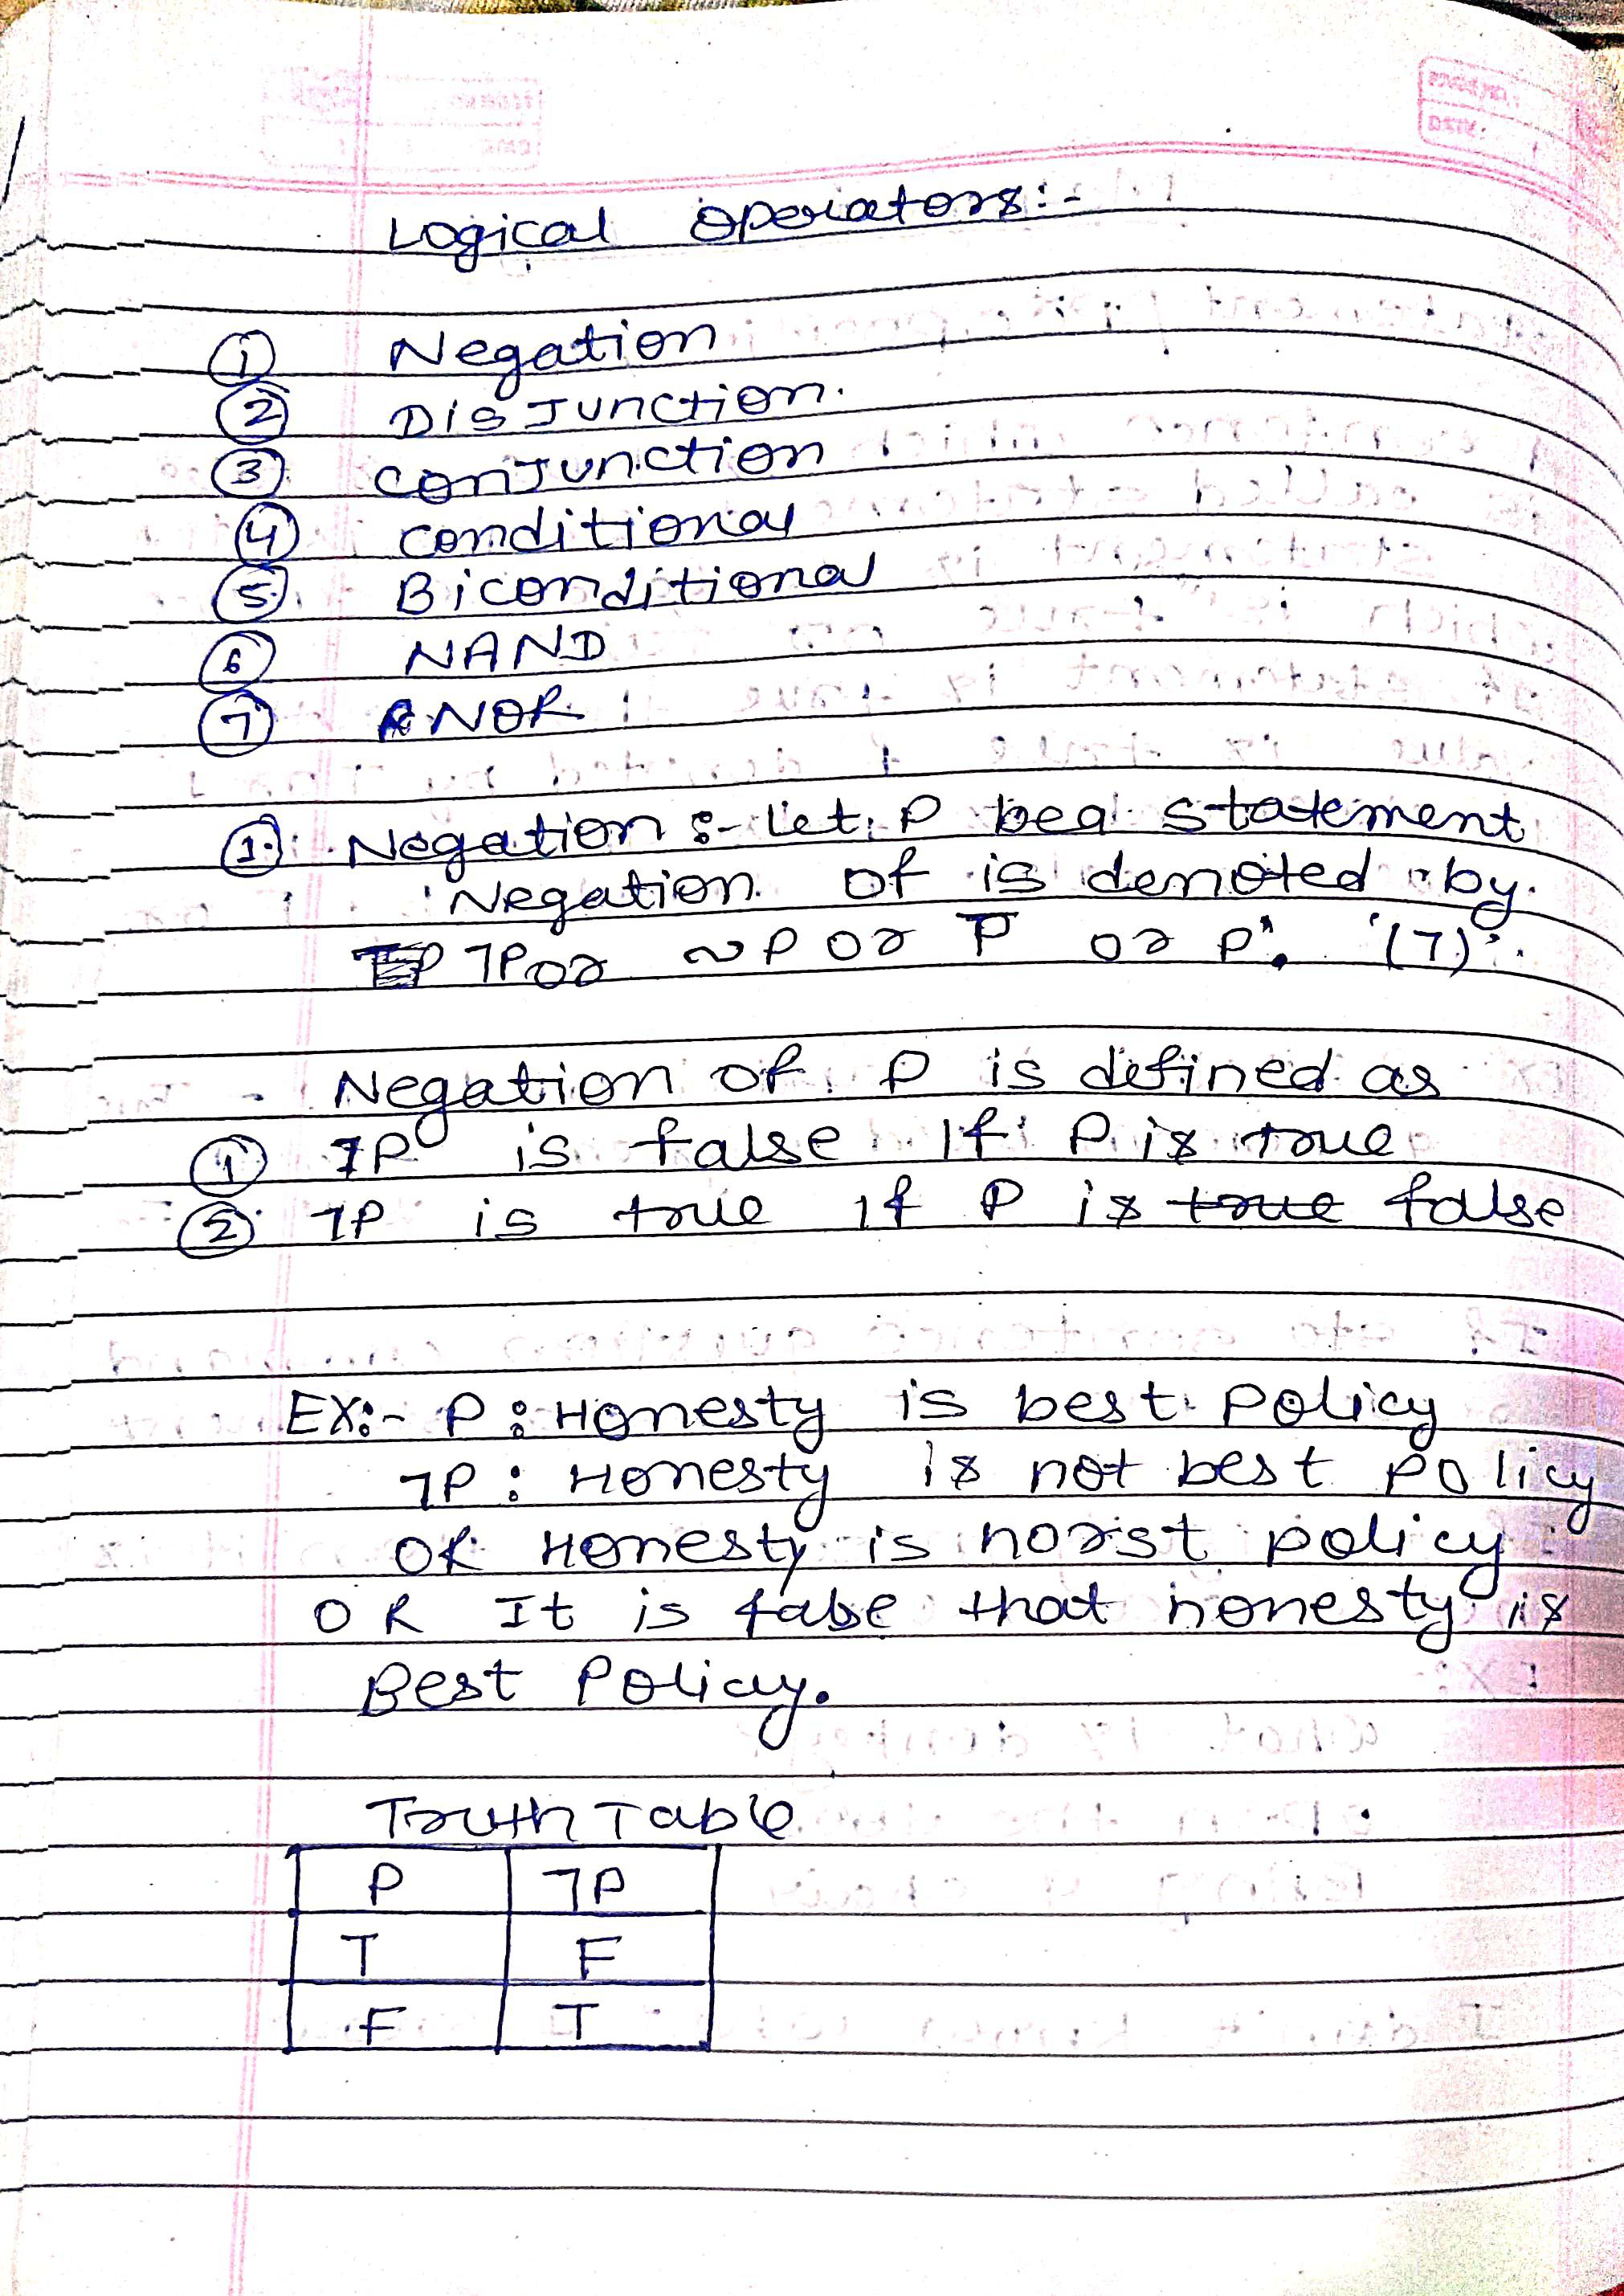 Logical operators:-
① Negation
② DisJunction.
③ conJunction
④ conditional
⑤ Biconditional
⑥ NAND
⑦ NOR
①. Negation :- Let P bea statement
Negation of is denoted by.
7P or ~P or P̅ or P'. '(7)'.
Negation of P is defined as
① 7P is false If P is true
② 7P is true if P is true false
EX:- P : Honesty is best Policy
7P : Honesty is not best policy
OR Honesty is norst policy
OR It is false that honesty is
Best Policy.
Truth Table
P 7P
T F
F T